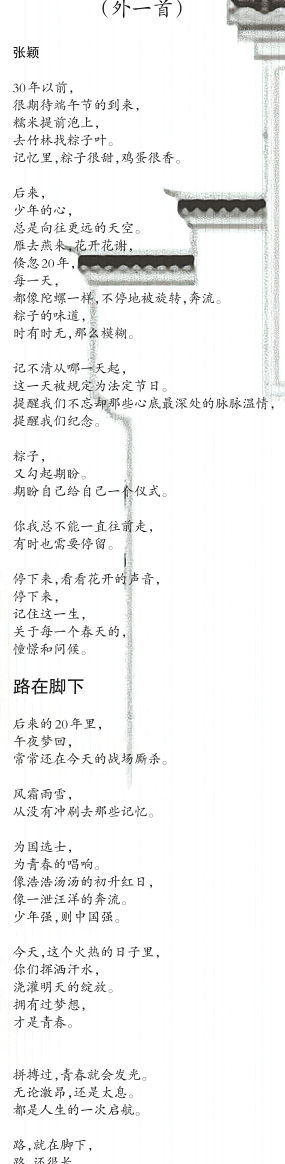 （外一首）
张颖
30年以前，
很期待端午节的到来，
糯米提前泡上，
去竹林找粽子叶。
记忆里，粽子很甜，鸡蛋很香。
后来，
少年的心，
总是向往更远的天空。
雁去燕来，花开花谢，
倏忽20年，
每一天，
都像陀螺一样，不停地被旋转，奔流。
粽子的味道，
时有时无，那么模糊。
记不清从哪一天起，
这一天被规定为法定节日。
提醒我们不忘却那些心底最深处的脉脉温情，
提醒我们纪念。
粽子，
又勾起期盼。
期盼自己给自己一个仪式。
你我总不能一直往前走，
有时也需要停留。
停下来，看看花开的声音，
停下来，
记住这一生，
关于每一个春天的，
憧憬和问候。
路在脚下
后来的20年里，
午夜梦回，
常常还在今天的战场厮杀。
风霜雨雪，
从没有冲刷去那些记忆。
为国选士，
为青春的唱响。
像浩浩汤汤的初升红日，
像一泄汪洋的奔流。
少年强，则中国强。
今天，这个火热的日子里，
你们挥洒汗水，
浇灌明天的绽放。
拥有过梦想，
才是青春。
拼搏过，青春就会发光。
无论激昂，还是太息。
都是人生的一次启航。
路，就在脚下，
路，还很长